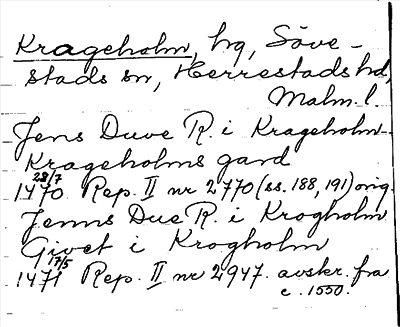 Krageholm, hg, Söve-
stads sn, Herrestads hd,
Malm. l.
Jens Duve R. i Krageholm
Krageholms gard
1470 28/7 Rep. II nr 2770 (ss. 188, 191) orig.
Jenns Due R. i Krogholm
Givet i Krogholm
1471 17/5 Rep. II nr 2947. avskr. fra
c. 1550.